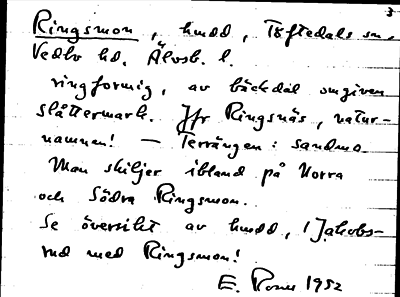 3
Ringsmon, hmdd, Töftedals sn,
Vedbo hd. Älvsb. l.
ringformig, av bäckdal omgiven
slåttermark. Jfr Ringsnäs, natur-
namnen! — Terrängen: sandmo
Man skiljer ibland på Norra
och Södra Ringsmon.
Se översikt av hmdd, i Jakobs-
rud med Ringsmon!
E. 1952